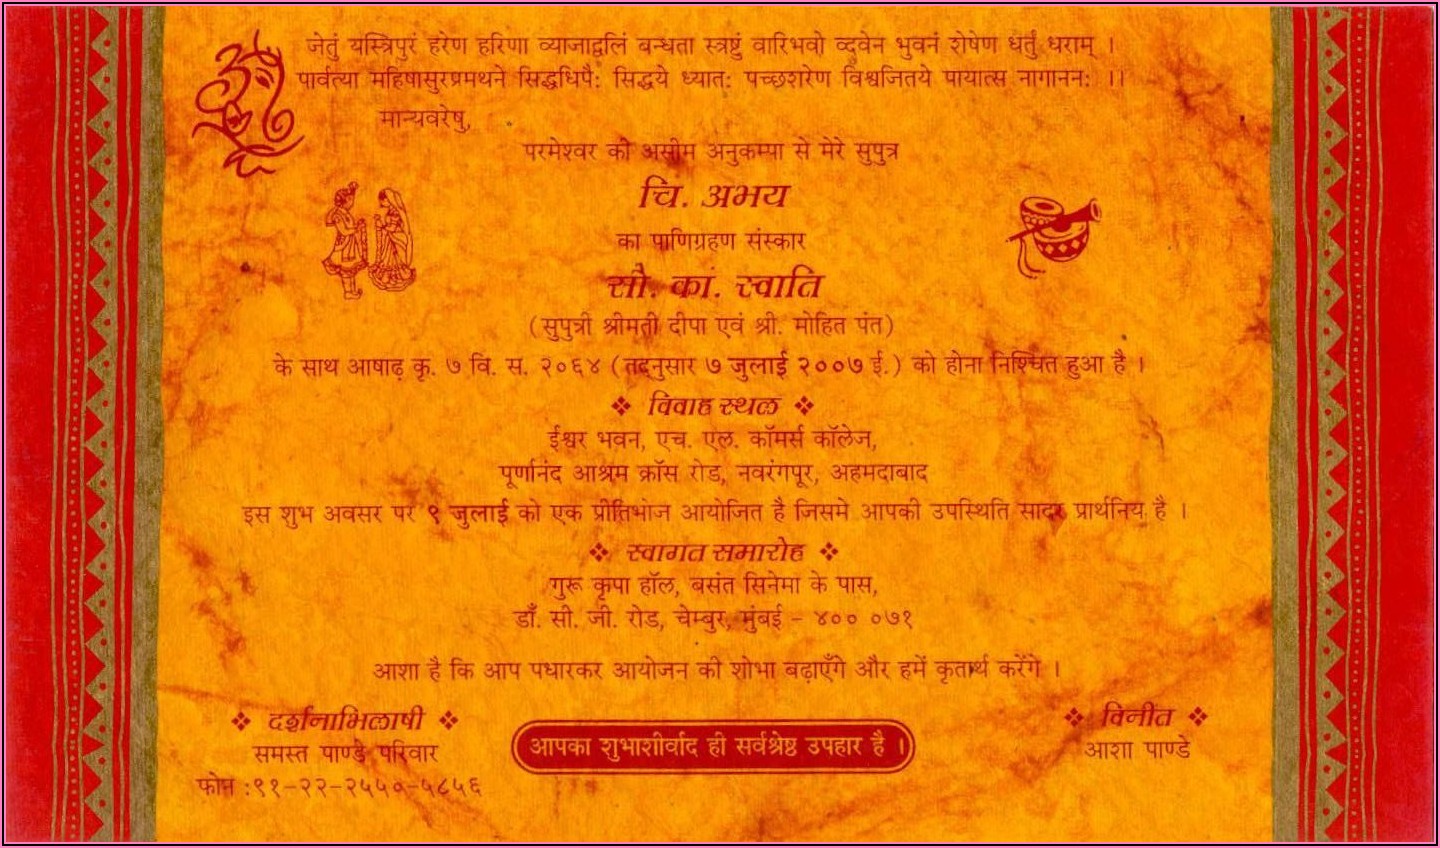 जेतुं यस्त्रिपुरं हरेण हरिणा व्याजाद्वलिं बन्धता स्त्रष्टुं वारिभवो व्द्ववेन भुवनं शेषेण धर्तुं धराम् ।
पार्वत्या महिषासुरप्रमथने सिद्धधिपैः सिद्धये ध्यातः पच्छशरेण विश्वजितये पायात्स नागाननः ।।
मान्यवरेषु,
परमेश्वर की असीम अनुकम्पा से मेरे सुपुत्र
चि. अभय
का पाणिग्रहण संस्कार
सौ. कां. स्वाति
(सुपुत्री श्रीमती दीपा एवं श्री. मोहित पंत)
के साथ आषाढ़ कृ. ७ वि. स. २०६४ (तद्नुसार ७ जुलाई २००७ ई.) को होना निश्चित हुआ है ।
❖ विवाह स्थल ❖
ईश्वर भवन, एच. एल. कॉमर्स कॉलेज,
पूर्णानंद आश्रम क्रॉस रोड, नवरंगपूर, अहमदाबाद
इस शुभ अवसर पर ९ जुलाई को एक प्रीतिभोज आयोजित है जिसमे आपकी उपस्थिति सादर प्रार्थनिय है ।
❖ स्वागत समारोह ❖
गुरू कृपा हॉल, बसंत सिनेमा के पास,
डॉं. सी. जी. रोड, चेम्बुर, मुंबई - ४०० ०७१
आशा है कि आप पधारकर आयोजन की शोभा बढ़ाएँगे और हमें कृतार्थ करेंगे ।
❖ दर्शनाभिलाषी ❖
समस्त पाण्डे परिवार
फोन :९१-२२-२५५०-५८५६
आपका शुभाशीर्वाद ही सर्वश्रेष्ठ उपहार है ।
❖ विनीत ❖
आशा पाण्डे